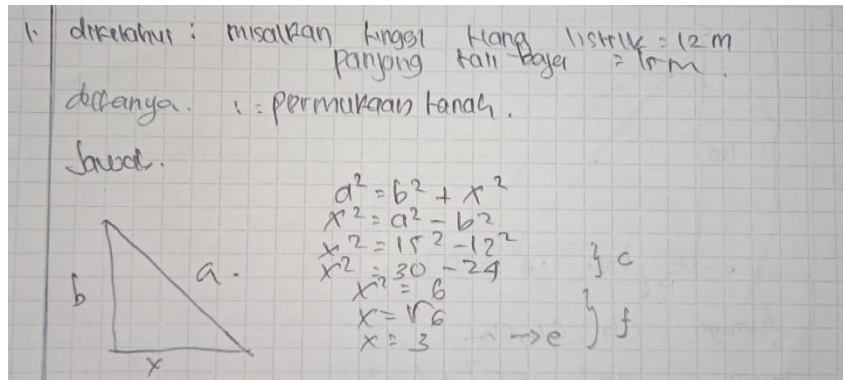 1. diketahui : misalkan tinggi tiang listrik = 12 m
panjang tali baja = 15 m.
ditanya. : = permukaan tanah.
Jawab.
a² = b² + x²
x² = a² - b²
x² = 15² - 12²
x² = 30 - 24 } c
x² = 6
x = √6 } f
x = 3 → e
b
a.
x